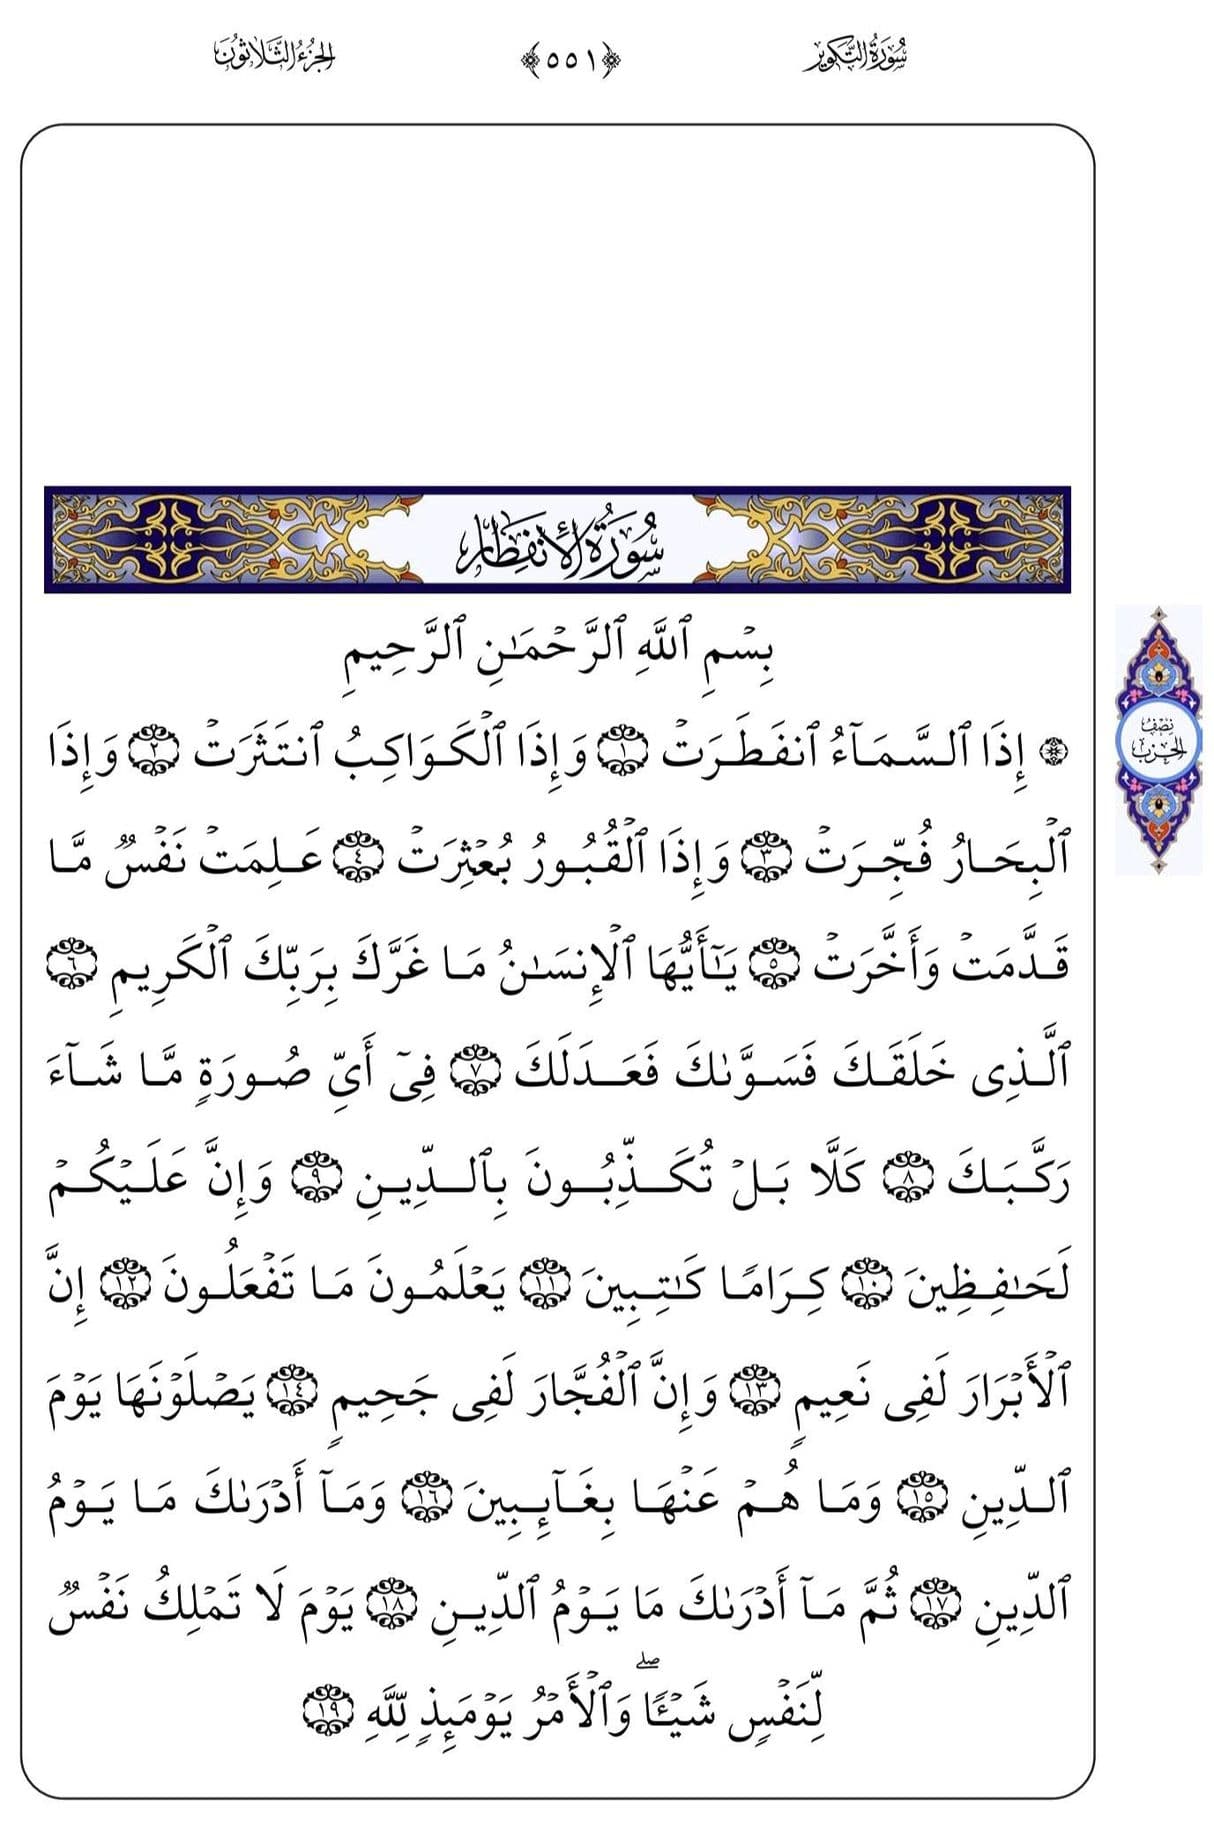 سُورَةُ التَّكْوِير ﴿٥٥١﴾ الجُزْءُ الثَّلَاثُونَ
سُورَةُ الإِنفِطَار
بِسۡمِ ٱللَّهِ ٱلرَّحۡمَٰنِ ٱلرَّحِيمِ
نِصْفُ الحِزْب
۞ إِذَا ٱلسَّمَآءُ ٱنفَطَرَتۡ ١ وَإِذَا ٱلۡكَوَاكِبُ ٱنتَثَرَتۡ ٢ وَإِذَا
ٱلۡبِحَارُ فُجِّرَتۡ ٣ وَإِذَا ٱلۡقُبُورُ بُعۡثِرَتۡ ٤ عَلِمَتۡ نَفۡسٞ مَّا
قَدَّمَتۡ وَأَخَّرَتۡ ٥ يَٰٓأَيُّهَا ٱلۡإِنسَٰنُ مَا غَرَّكَ بِرَبِّكَ ٱلۡكَرِيمِ ٦
ٱلَّذِي خَلَقَكَ فَسَوَّىٰكَ فَعَدَلَكَ ٧ فِيٓ أَيِّ صُورَةٖ مَّا شَآءَ
رَكَّبَكَ ٨ كَلَّا بَلۡ تُكَذِّبُونَ بِٱلدِّينِ ٩ وَإِنَّ عَلَيۡكُمۡ
لَحَٰفِظِينَ ١٠ كِرَامٗا كَٰتِبِينَ ١١ يَعۡلَمُونَ مَا تَفۡعَلُونَ ١٢ إِنَّ
ٱلۡأَبۡرَارَ لَفِي نَعِيمٖ ١٣ وَإِنَّ ٱلۡفُجَّارَ لَفِي جَحِيمٖ ١٤ يَصۡلَوۡنَهَا يَوۡمَ
ٱلدِّينِ ١٥ وَمَا هُمۡ عَنۡهَا بِغَآئِبِينَ ١٦ وَمَآ أَدۡرَىٰكَ مَا يَوۡمُ
ٱلدِّينِ ١٧ ثُمَّ مَآ أَدۡرَىٰكَ مَا يَوۡمُ ٱلدِّينِ ١٨ يَوۡمَ لَا تَمۡلِكُ نَفۡسٞ
لِّنَفۡسٖ شَيۡـٔٗاۖ وَٱلۡأَمۡرُ يَوۡمَئِذٖ لِّلَّهِ ١٩